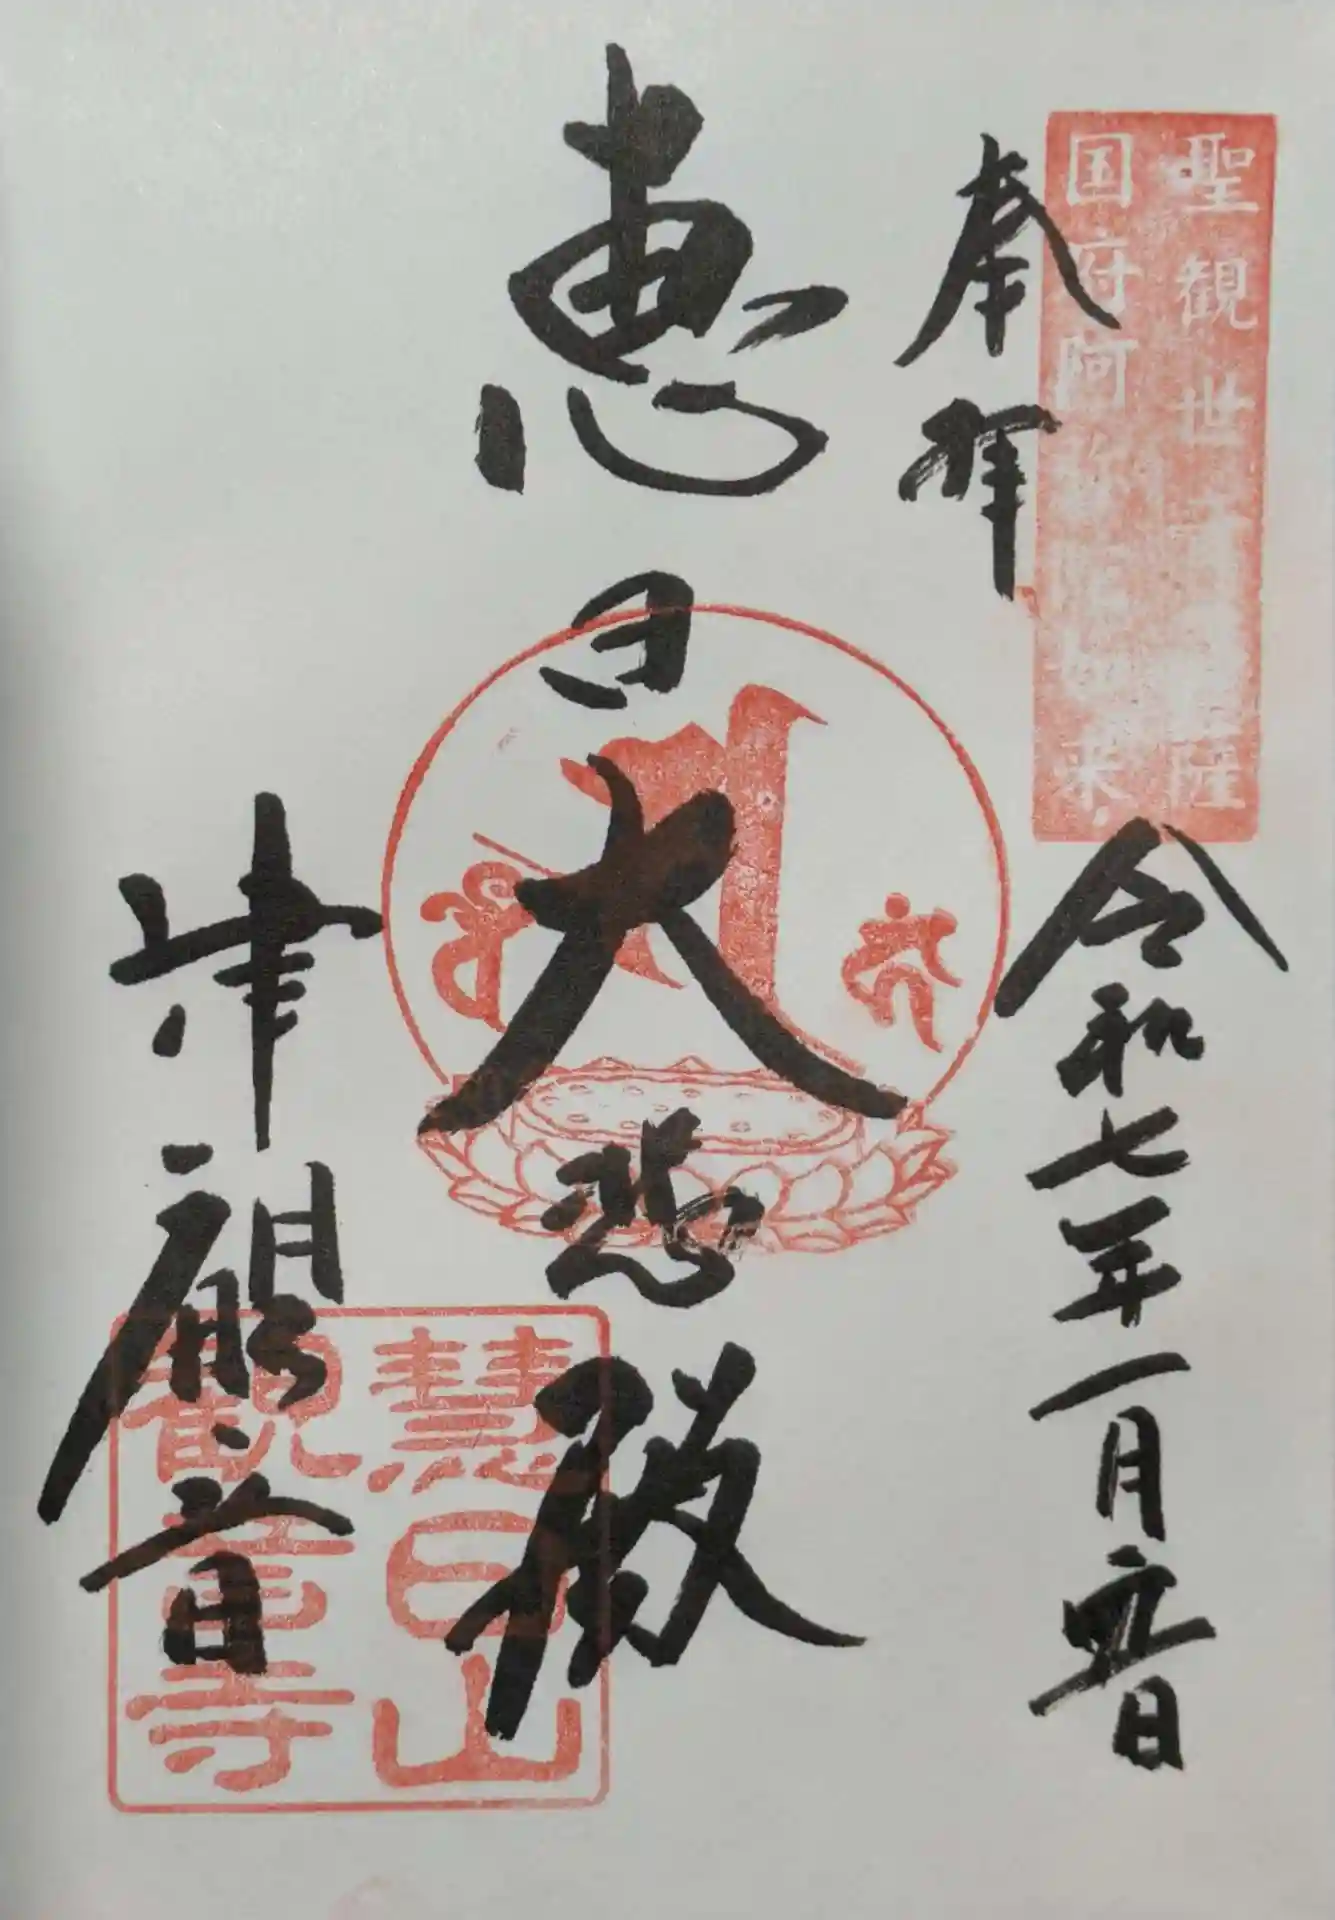 聖観世音菩薩
国府阿弥陀如来
奉拝
令和七年一月 日
恵日大悲殿
津觀音
慧日山
觀音寺